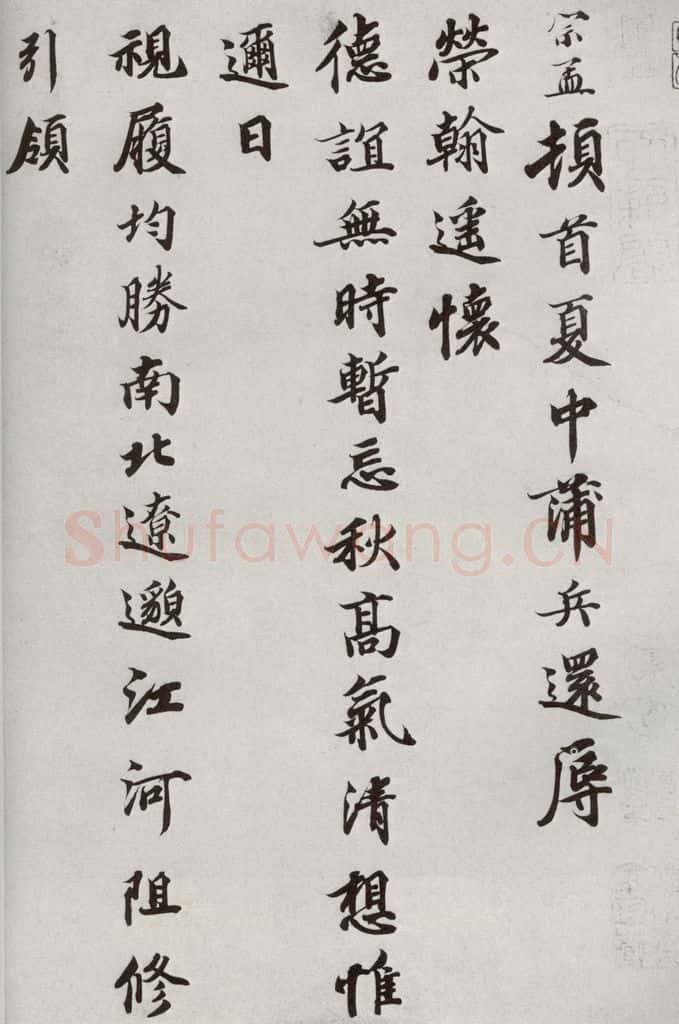 宗孟頓首夏中蒲兵還辱
榮翰遥懷
德誼無時暫忘秋髙氣清想惟
邇日
視履均勝南北遼邈江河阻修
引領
Shufawang.CN